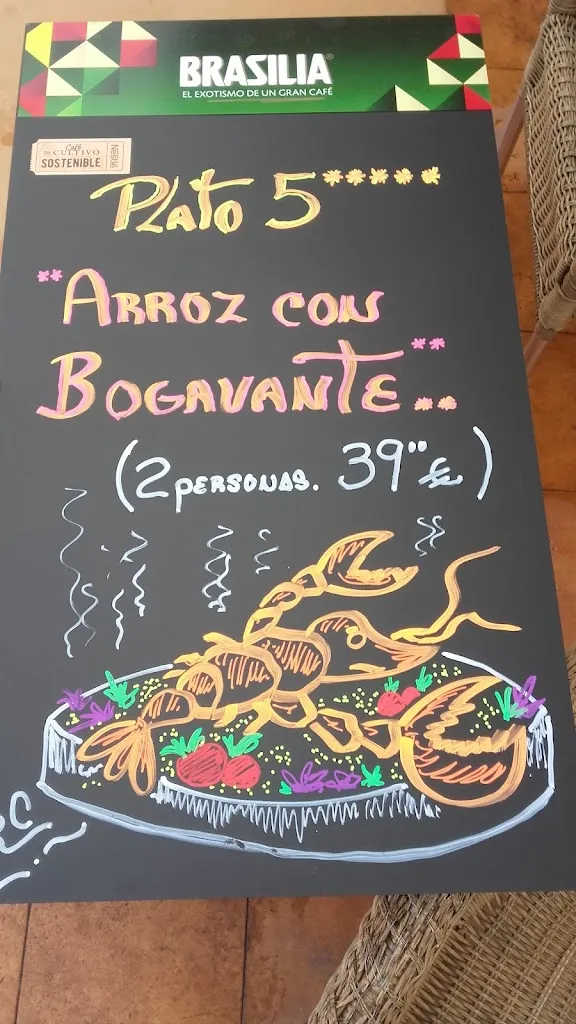 BRASILIA®
EL EXOTISMO DE UN GRAN CAFÉ
Café
DE CULTIVO
SOSTENIBLE
PLATO 5*****
**ARROZ CON
BOGAVANTE**..
(2 PERSONAS. 39'' €)